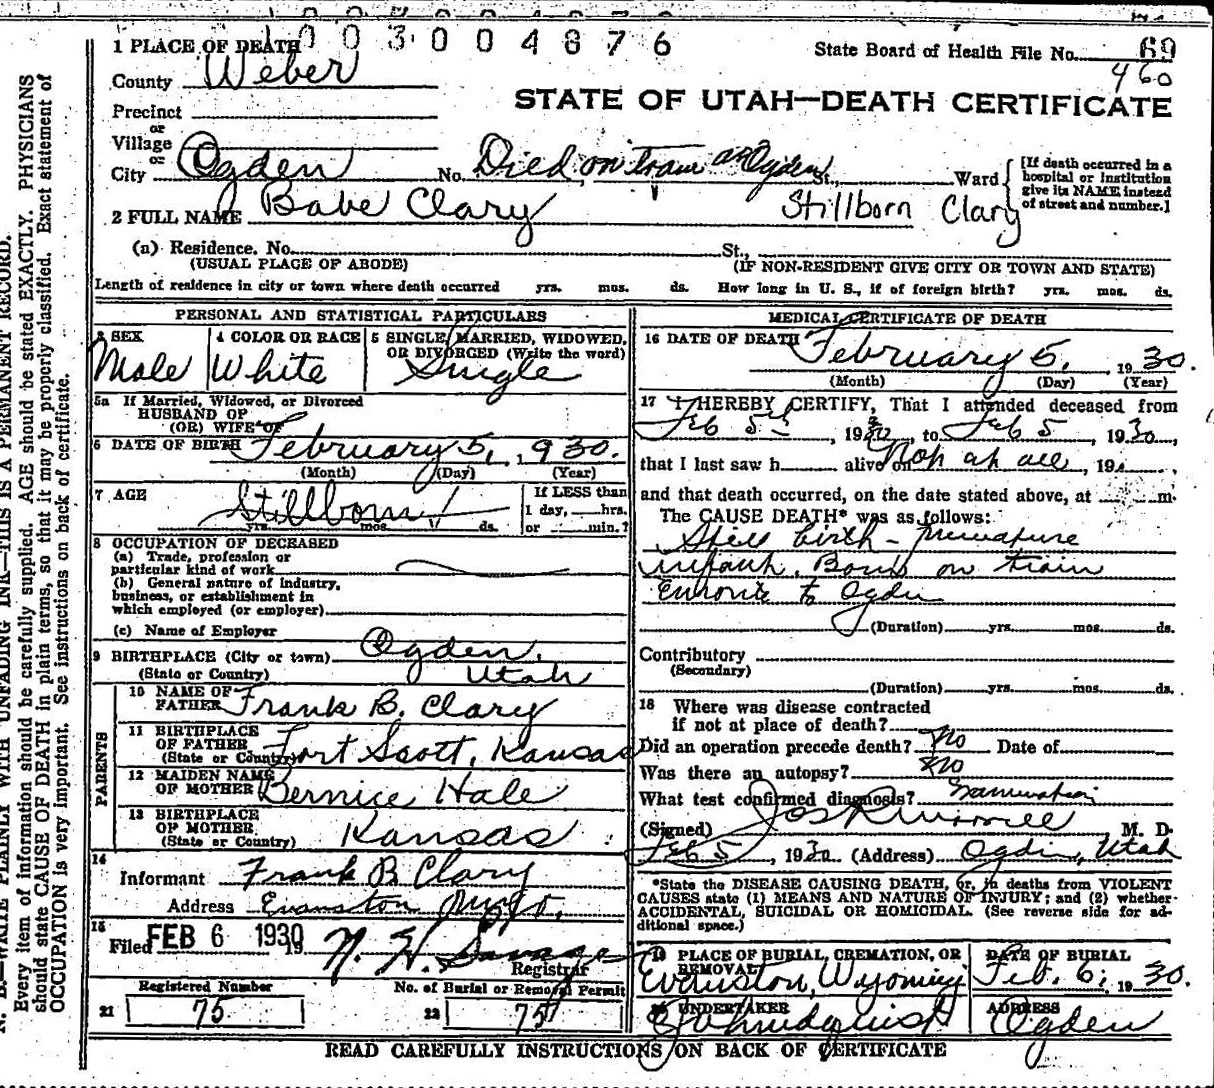 1003004876
1 PLACE OF DEATH
State Board of Health File No. 69
460
County Weber
STATE OF UTAH—DEATH CERTIFICATE
Precinct
or
Village
or
City Ogden No. Died on train at Ogden St., Ward
[If death occurred in a hospital or institution give its NAME instead of street and number.]
2 FULL NAME Babe Clary Stillborn Clary
(a) Residence. No. St.,
(USUAL PLACE OF ABODE) (IF NON-RESIDENT GIVE CITY OR TOWN AND STATE)
Length of residence in city or town where death occurred yrs. mos. ds. How long in U. S., if of foreign birth? yrs. mos. ds.
PERSONAL AND STATISTICAL PARTICULARS
3 SEX
Male
4 COLOR OR RACE
White
5 SINGLE, MARRIED, WIDOWED,
OR DIVORCED (Write the word)
Single
5a If Married, Widowed, or Divorced
HUSBAND OF
(OR) WIFE OF
6 DATE OF BIRTH February 5, 1930.
(Month) (Day) (Year)
7 AGE
Stillborn
yrs. mos. ds.
If LESS than
1 day, hrs.
or min.?
8 OCCUPATION OF DECEASED
(a) Trade, profession or
particular kind of work
(b) General nature of industry,
business, or establishment in
which employed (or employer)
(c) Name of Employer
9 BIRTHPLACE (City or town) Ogden,
(State or Country) Utah
PARENTS
10 NAME OF
FATHER Frank B. Clary
11 BIRTHPLACE
OF FATHER
(State or Country) Fort Scott, Kansas
12 MAIDEN NAME
OF MOTHER Bernice Hale
13 BIRTHPLACE
OF MOTHER
(State or Country) Kansas
14
Informant Frank B. Clary
Address Evanston Wyo.
15
Filed FEB 6 1930 19 N. H. Savage
Registrar
Registered Number
21 75
No. of Burial or Removal Permit
22 75
MEDICAL CERTIFICATE OF DEATH
16 DATE OF DEATH February 5, 1930.
(Month) (Day) (Year)
17 I HEREBY CERTIFY, That I attended deceased from
Feb 5, 1930, to Feb 5, 1930,
that I last saw h alive on Not at all, 19
and that death occurred, on the date stated above, at m.
The CAUSE DEATH* was as follows:
Still birth - Premature
infant. Born on train
Enroute to Ogden
(Duration) yrs. mos. ds.
Contributory
(Secondary)
(Duration) yrs. mos. ds.
18 Where was disease contracted
if not at place of death?
Did an operation precede death? No Date of
Was there an autopsy? No
What test confirmed diagnosis?
(Signed) M. D.
Feb 5, 1930 (Address) Ogden, Utah
*State the DISEASE CAUSING DEATH, or, in deaths from VIOLENT
CAUSES state (1) MEANS AND NATURE OF INJURY; and (2) whether
ACCIDENTAL, SUICIDAL OR HOMICIDAL. (See reverse side for ad-
ditional space.)
19 PLACE OF BURIAL, CREMATION, OR
REMOVAL
Evanston, Wyoming
DATE OF BURIAL
Feb. 6, 1930.
20 UNDERTAKER
ADDRESS
Ogden
READ CAREFULLY INSTRUCTIONS ON BACK OF CERTIFICATE
N. B.—WRITE PLAINLY WITH UNFADING INK—THIS IS A PERMANENT RECORD.
Every item of information should be carefully supplied. AGE should be stated EXACTLY. PHYSICIANS
should state CAUSE OF DEATH in plain terms, so that it may be properly classified. Exact statement of
OCCUPATION is very important. See instructions on back of certificate.